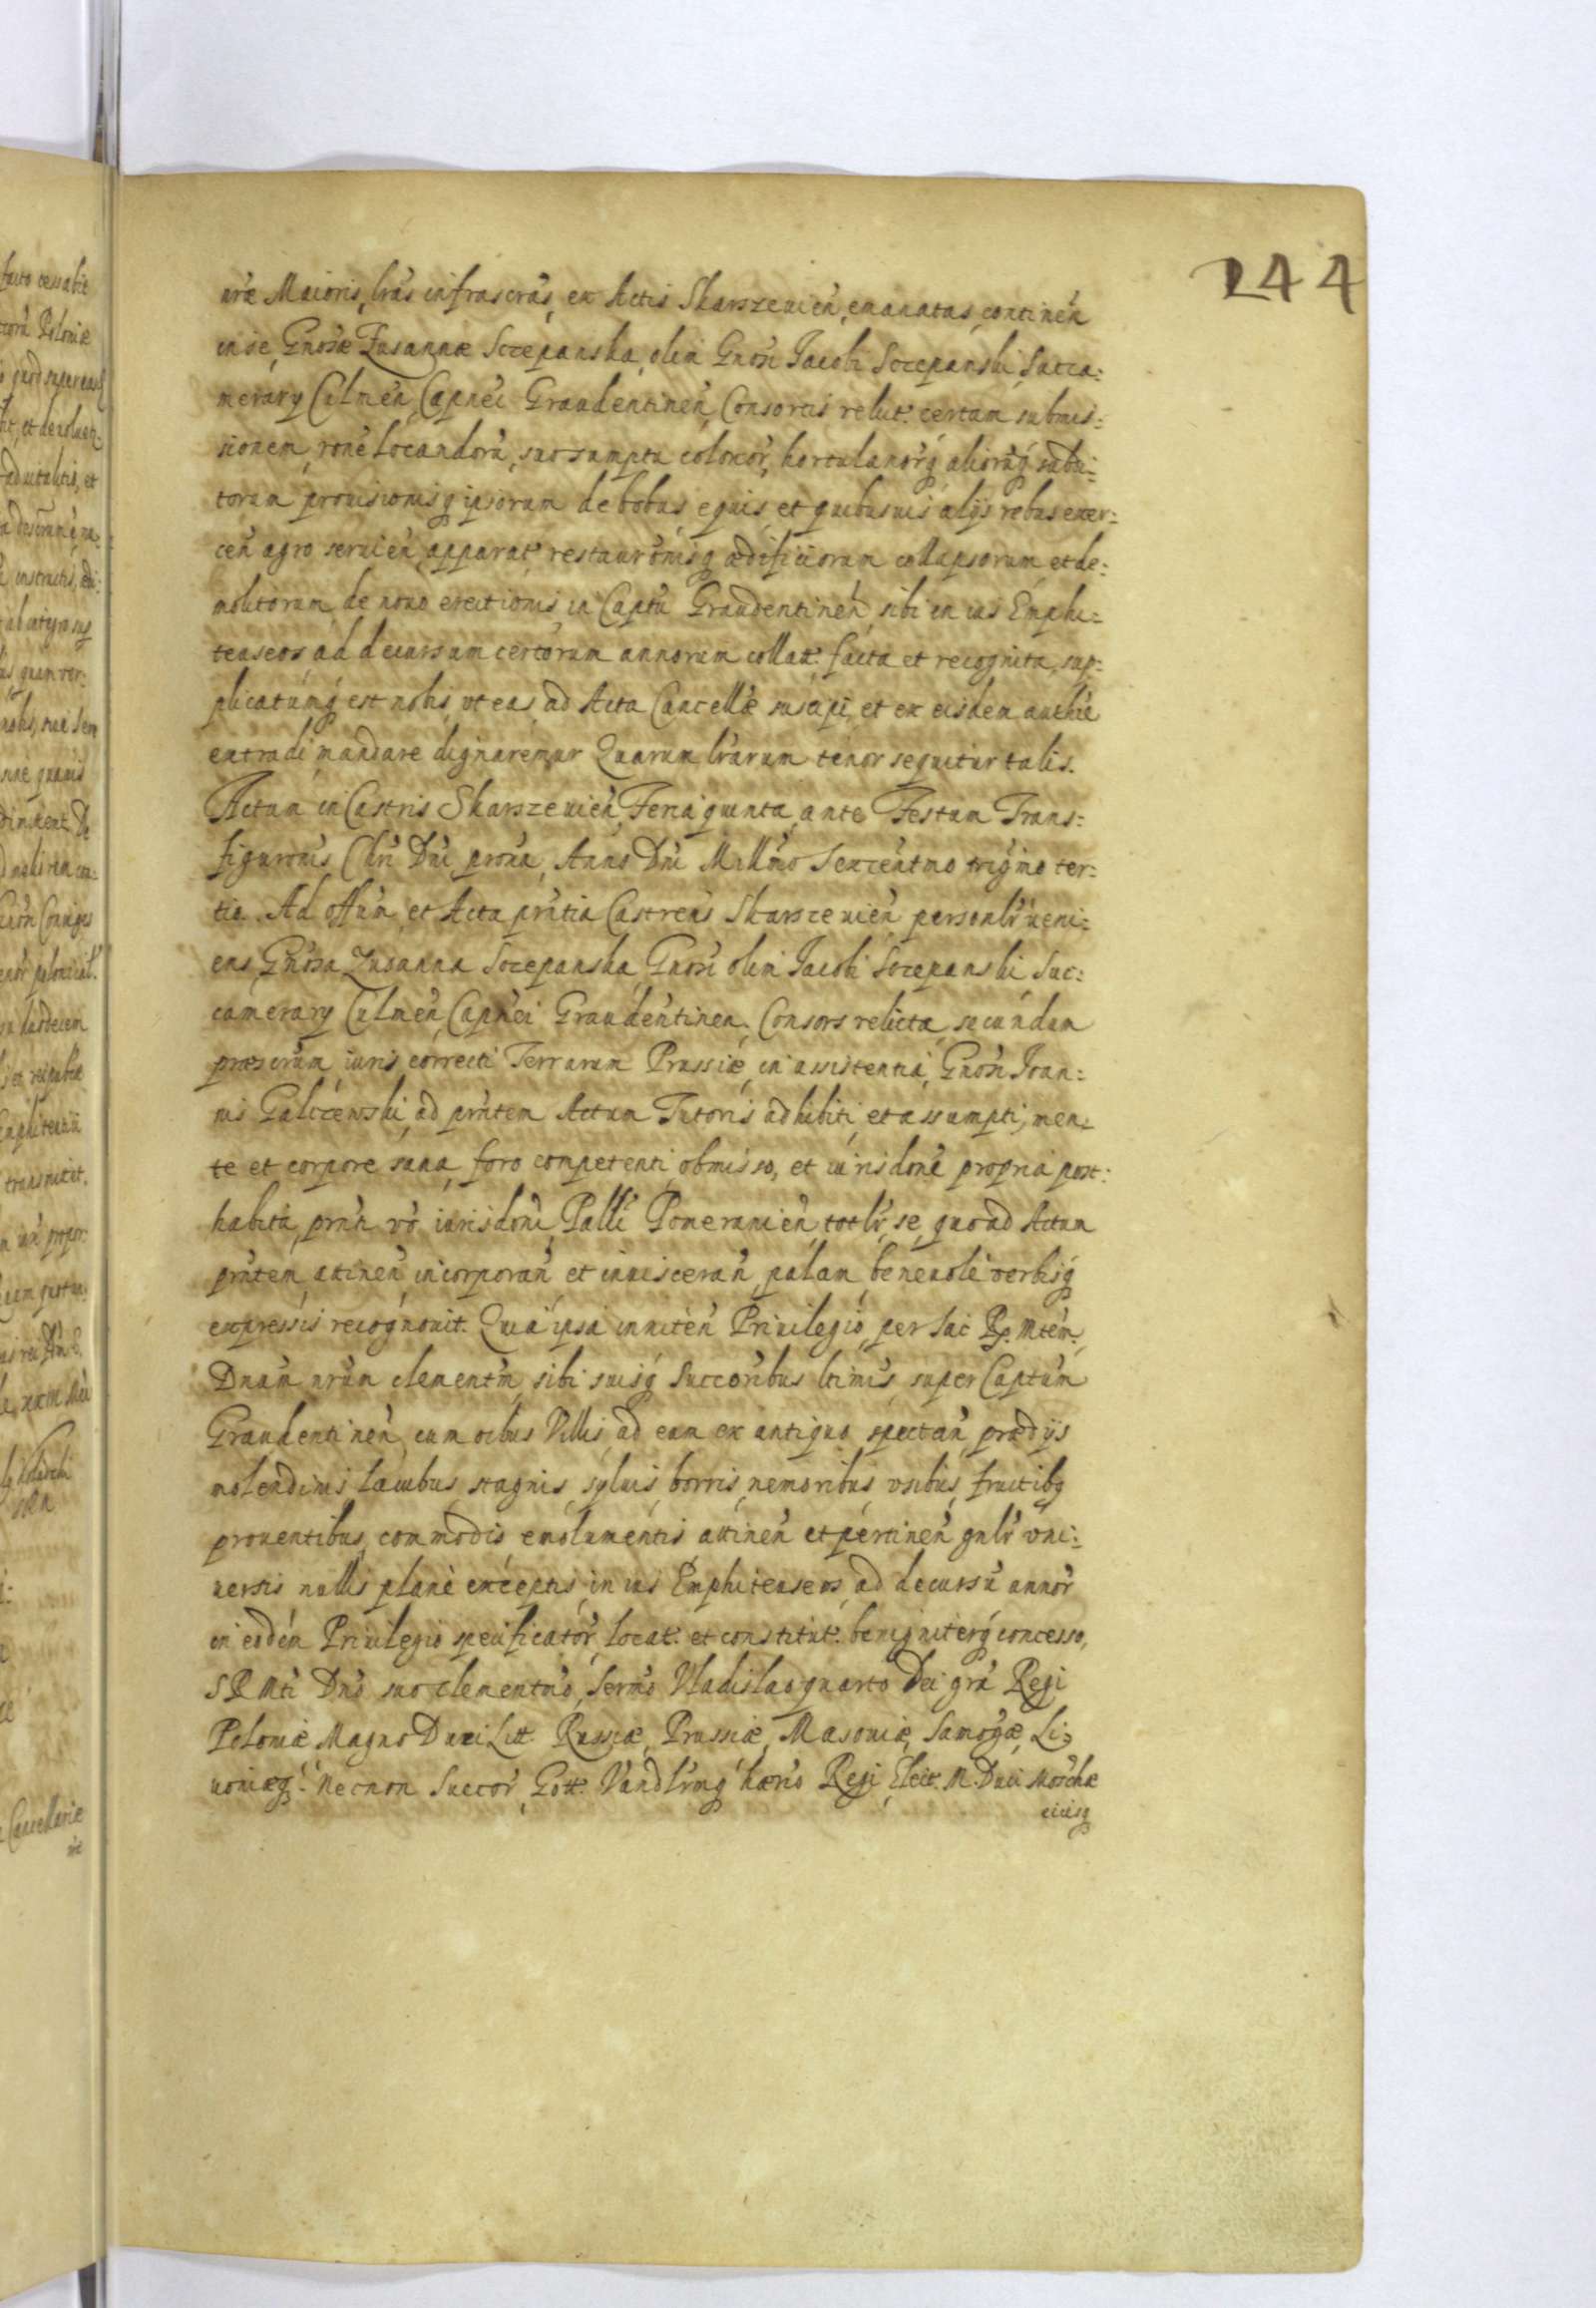 244
nræ Maioris, lras infrascras, ex Actis Skarszevien, emanatas, continen
in se, Gnosæ Zusannæ Sczepanska, olim Gnosi Jacobi Sczepanski Succa:
merary Culmen, Capnei Graudentinen, Consortis relict. certam submis:
sionem, rone locandoru, suo sumptu colonor, hortulanorq aliorūq subdi:
torum prouisionisq ipsorum de bobus equis et quibusuis alijs rebus exer:
cen agro seruien, apparat. restauronisq ædificiorum collapsorum, et de:
molitorum, de nouo erectionis, in Captu Graudentinen, sibi in ius Emphi:
teuseos ad decursum certorum annorum collat. facta et recognita, sup:
plicatumq est nobis, vt eas, ad Acta Cancellæ suscipi, et ex eisdem authe
extradi, mandare dignaremur Quarum lrarum tenor sequitur talis.
Actum in Castris Skarszeuien, Feria quinta, ante Festum Trans:
figuronis Chri Dni proxa, Anno Dni Millmo Sexcentmo trigmo ter:
tio. Ad offum, et Acta prntia Castren Skarszeuien personlr ueni:
ens, Gnosa Zusanna Sczepanska, Gnosi olim Jacobi Sczepanski Suc:
camerary Culmen, Capnei Graudentinen. Consors relicta, secundum
præscrum iuris correcti Terrarum Prussiæ, in assistentia, Gnosi Joan:
nis Galczewski, ad prntem Actum Tutoris adhibiti, et assumpti, men:
te et corpore sana, foro competenti obmisso, et iurisdone propria post:
habita, prnti vo iurisdoni, Pallī Pomeranien, totlr, se, quoad Actum
prntem, attinen, incorporan et inuisceran, palam, beneuole verbisq
expressis recognouit. Quia ipsa inniten Priuilegio, per Sac Rg. Mtem,
Dnum nrum clementm, sibi suisq Succoribus ltimis super Captum
Graudentinen, cum oibus Villis, ad eam ex antiquo spectan, prædijs
molendinis lacubus, stagnis, syluis, borris, nemoribus, vsibus, fructibq
prouentibus, commodis emolumentis attinen et pertinen gnlr vni:
uersis nullis plane exceptis, in ius Emphiteuseos, ad decursu annor
in eodem Priuilegio specificator, locat. et constitut. benigniterq concesso,
SR Mti Dno suo clementmo, Sermo Vladislao quarto Dei gra Regi
Poloniæ Magno Duci Litt. Russiæ, Prussiæ, Masouiæ, Samogæ, Li:
uoniæq. Necnon Succor, Gott. Vandlrmq hærio Regi, Elect. M. Duci Moschæ
eiusq